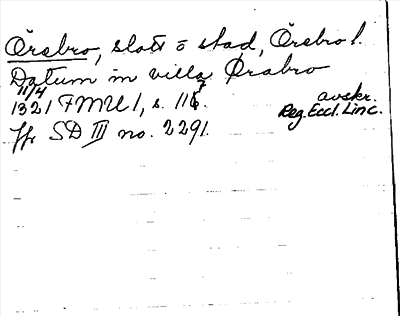 Örebro, slott o stad, Örebro l.
Datum in villa Ørabro
11/4
1321 FMU 1, s. 116. avskr.
Reg. Eccl. Linc.
Jfr SD III no. 2291.